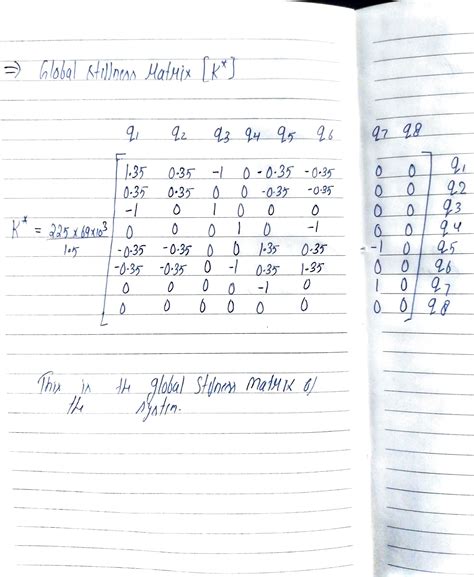 ⇒ Global Stiffness Matrix [K*]
q1 q2 q3 q4 q5 q6 q7 q8
1.35 0.35 -1 0 -0.35 -0.35 0 0 q1
0.35 0.35 0 0 -0.35 -0.35 0 0 q2
-1 0 1 0 0 0 0 0 q3
K* = 225 x 69x10³ / 1.5 0 0 0 1 0 -1 0 0 q4
-0.35 -0.35 0 0 1.35 0.35 -1 0 q5
-0.35 -0.35 0 -1 0.35 1.35 0 0 q6
0 0 0 0 -1 0 1 0 q7
0 0 0 0 0 0 0 0 q8
This is the global Stifness Matrix of
the system.